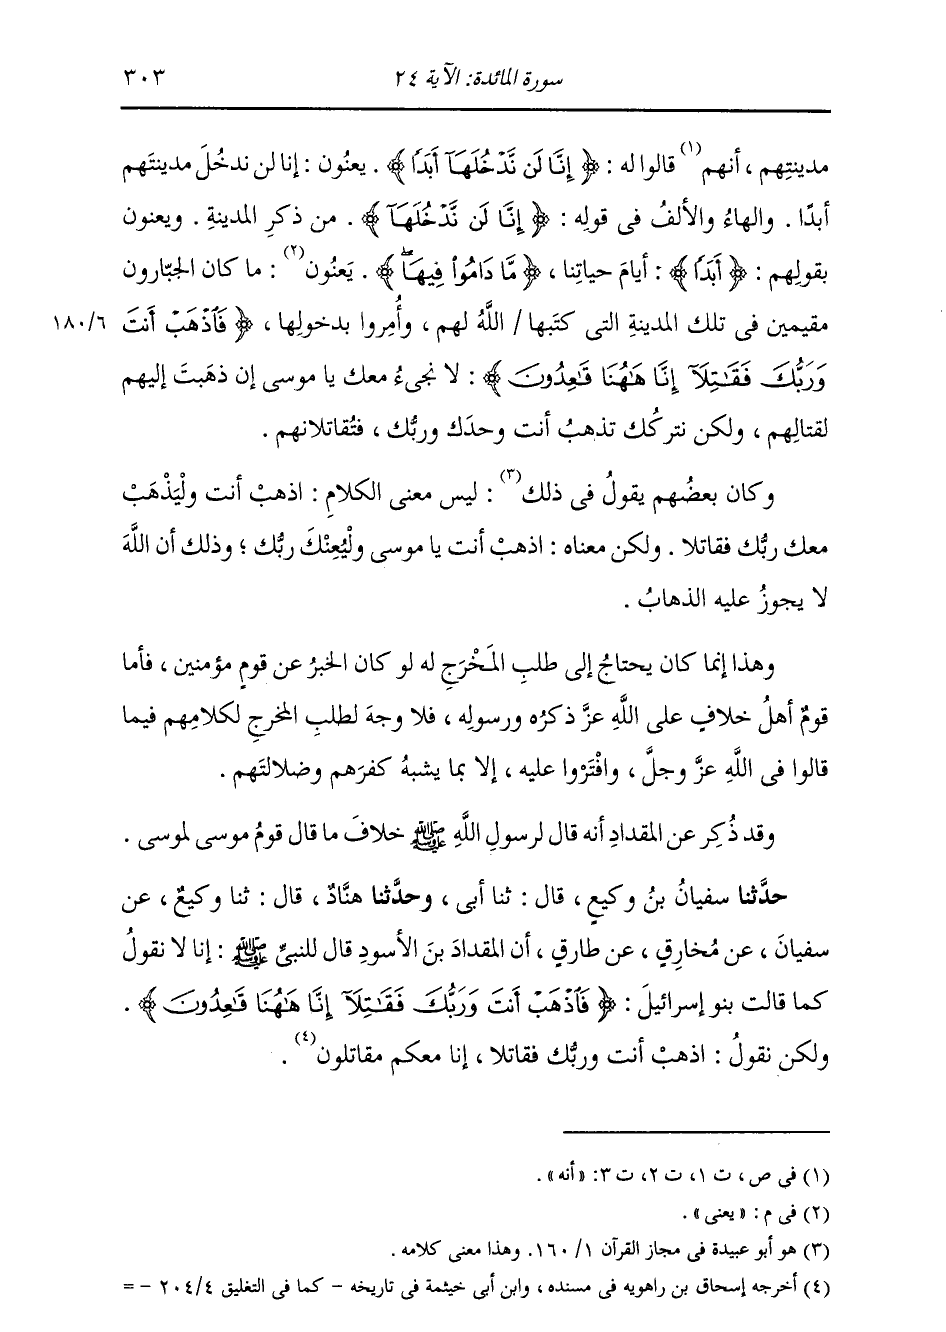 سورة المائدة: الآية ٢٤ ٣٠٣
مدينتِهم ، أنهم(١) قالوا له : ﴿ إِنَّا لَن نَّدْخُلَهَآ أَبَدًا ﴾ . يعنُون : إنا لن ندخُلَ مدينتَهم
أبدًا . والهاءُ والألفُ فى قولِه : ﴿ إِنَّا لَن نَّدْخُلَهَآ ﴾ . من ذكرِ المدينةِ . ويعنون
بقولِهم : ﴿ أَبَدًا ﴾ : أيامَ حياتِنا ، ﴿ مَّا دَامُوا۟ فِيهَا ۖ ﴾ . يَعنُون(٢) : ما كان الجبّارون
مقيمين فى تلك المدينةِ التى كتَبها / اللَّهُ لهم ، وأُمِروا بدخولِها ، ﴿ فَٱذْهَبْ أَنتَ ١٨٠/٦
وَرَبُّكَ فَقَٰتِلَآ إِنَّا هَٰهُنَا قَٰعِدُونَ ﴾ : لا نجىءُ معك يا موسى إن ذهَبتَ إليهم
لقتالِهم ، ولكن نتركُك تذهبُ أنت وحدَك وربُّك ، فتُقاتلانهم .
وكان بعضُهم يقولُ فى ذلك(٣) : ليس معنى الكلامِ : اذهبْ أنت ولْيَذْهَبْ
معك ربُّك فقاتلا . ولكن معناه : اذهبْ أنت يا موسى ولْيُعِنْكَ ربُّك ؛ وذلك أن اللَّهَ
لا يجوزُ عليه الذهابُ .
وهذا إنما كان يحتاجُ إلى طلبِ المَخْرَجِ له لو كان الخبرُ عن قومٍ مؤمنين ، فأما
قومٌ أهلُ خلافٍ على اللَّهِ عزَّ ذكرُه ورسولِه ، فلا وجهَ لطلبِ المخرجِ لكلامِهم فيما
قالوا فى اللَّهِ عزَّ وجلَّ ، وافْتَرْوا عليه ، إلا بما يشبهُ كفرَهم وضلالتَهم .
وقد ذُكِر عن المقدادِ أنه قال لرسولِ اللَّهِ ﷺ خلافَ ما قال قومُ موسى لموسى .
حدَّثنا سفيانُ بنُ وكيعٍ ، قال : ثنا أبى ، وحدَّثنا هنَّادٌ ، قال : ثنا وكيعٌ ، عن
سفيانَ ، عن مُخارِقٍ ، عن طارقٍ ، أن المقدادَ بنَ الأسودِ قال للنبىِّ ﷺ : إنا لا نقولُ
كما قالت بنو إسرائيلَ : ﴿ فَٱذْهَبْ أَنتَ وَرَبُّكَ فَقَٰتِلَآ إِنَّا هَٰهُنَا قَٰعِدُونَ ﴾ .
ولكن نقولُ : اذهبْ أنت وربُّك فقاتلا ، إنا معكم مقاتلون(٤) .
(١) فى ص ، ت ١، ت ٢، ت ٣: «أنه» .
(٢) فى م : « يعنى» .
(٣) هو أبو عبيدة فى مجاز القرآن ١/ ١٦٠. وهذا معنى كلامه .
(٤) أخرجه إسحاق بن راهويه فى مسنده ، وابن أبى خيثمة فى تاريخه - كما فى التغليق ٢٠٤/٤ - =